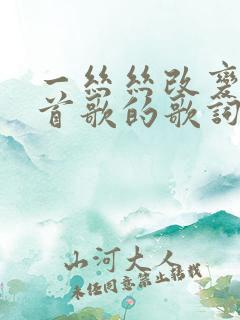 一丝丝改变
首歌的歌词
山河大人
未经同意禁止转载